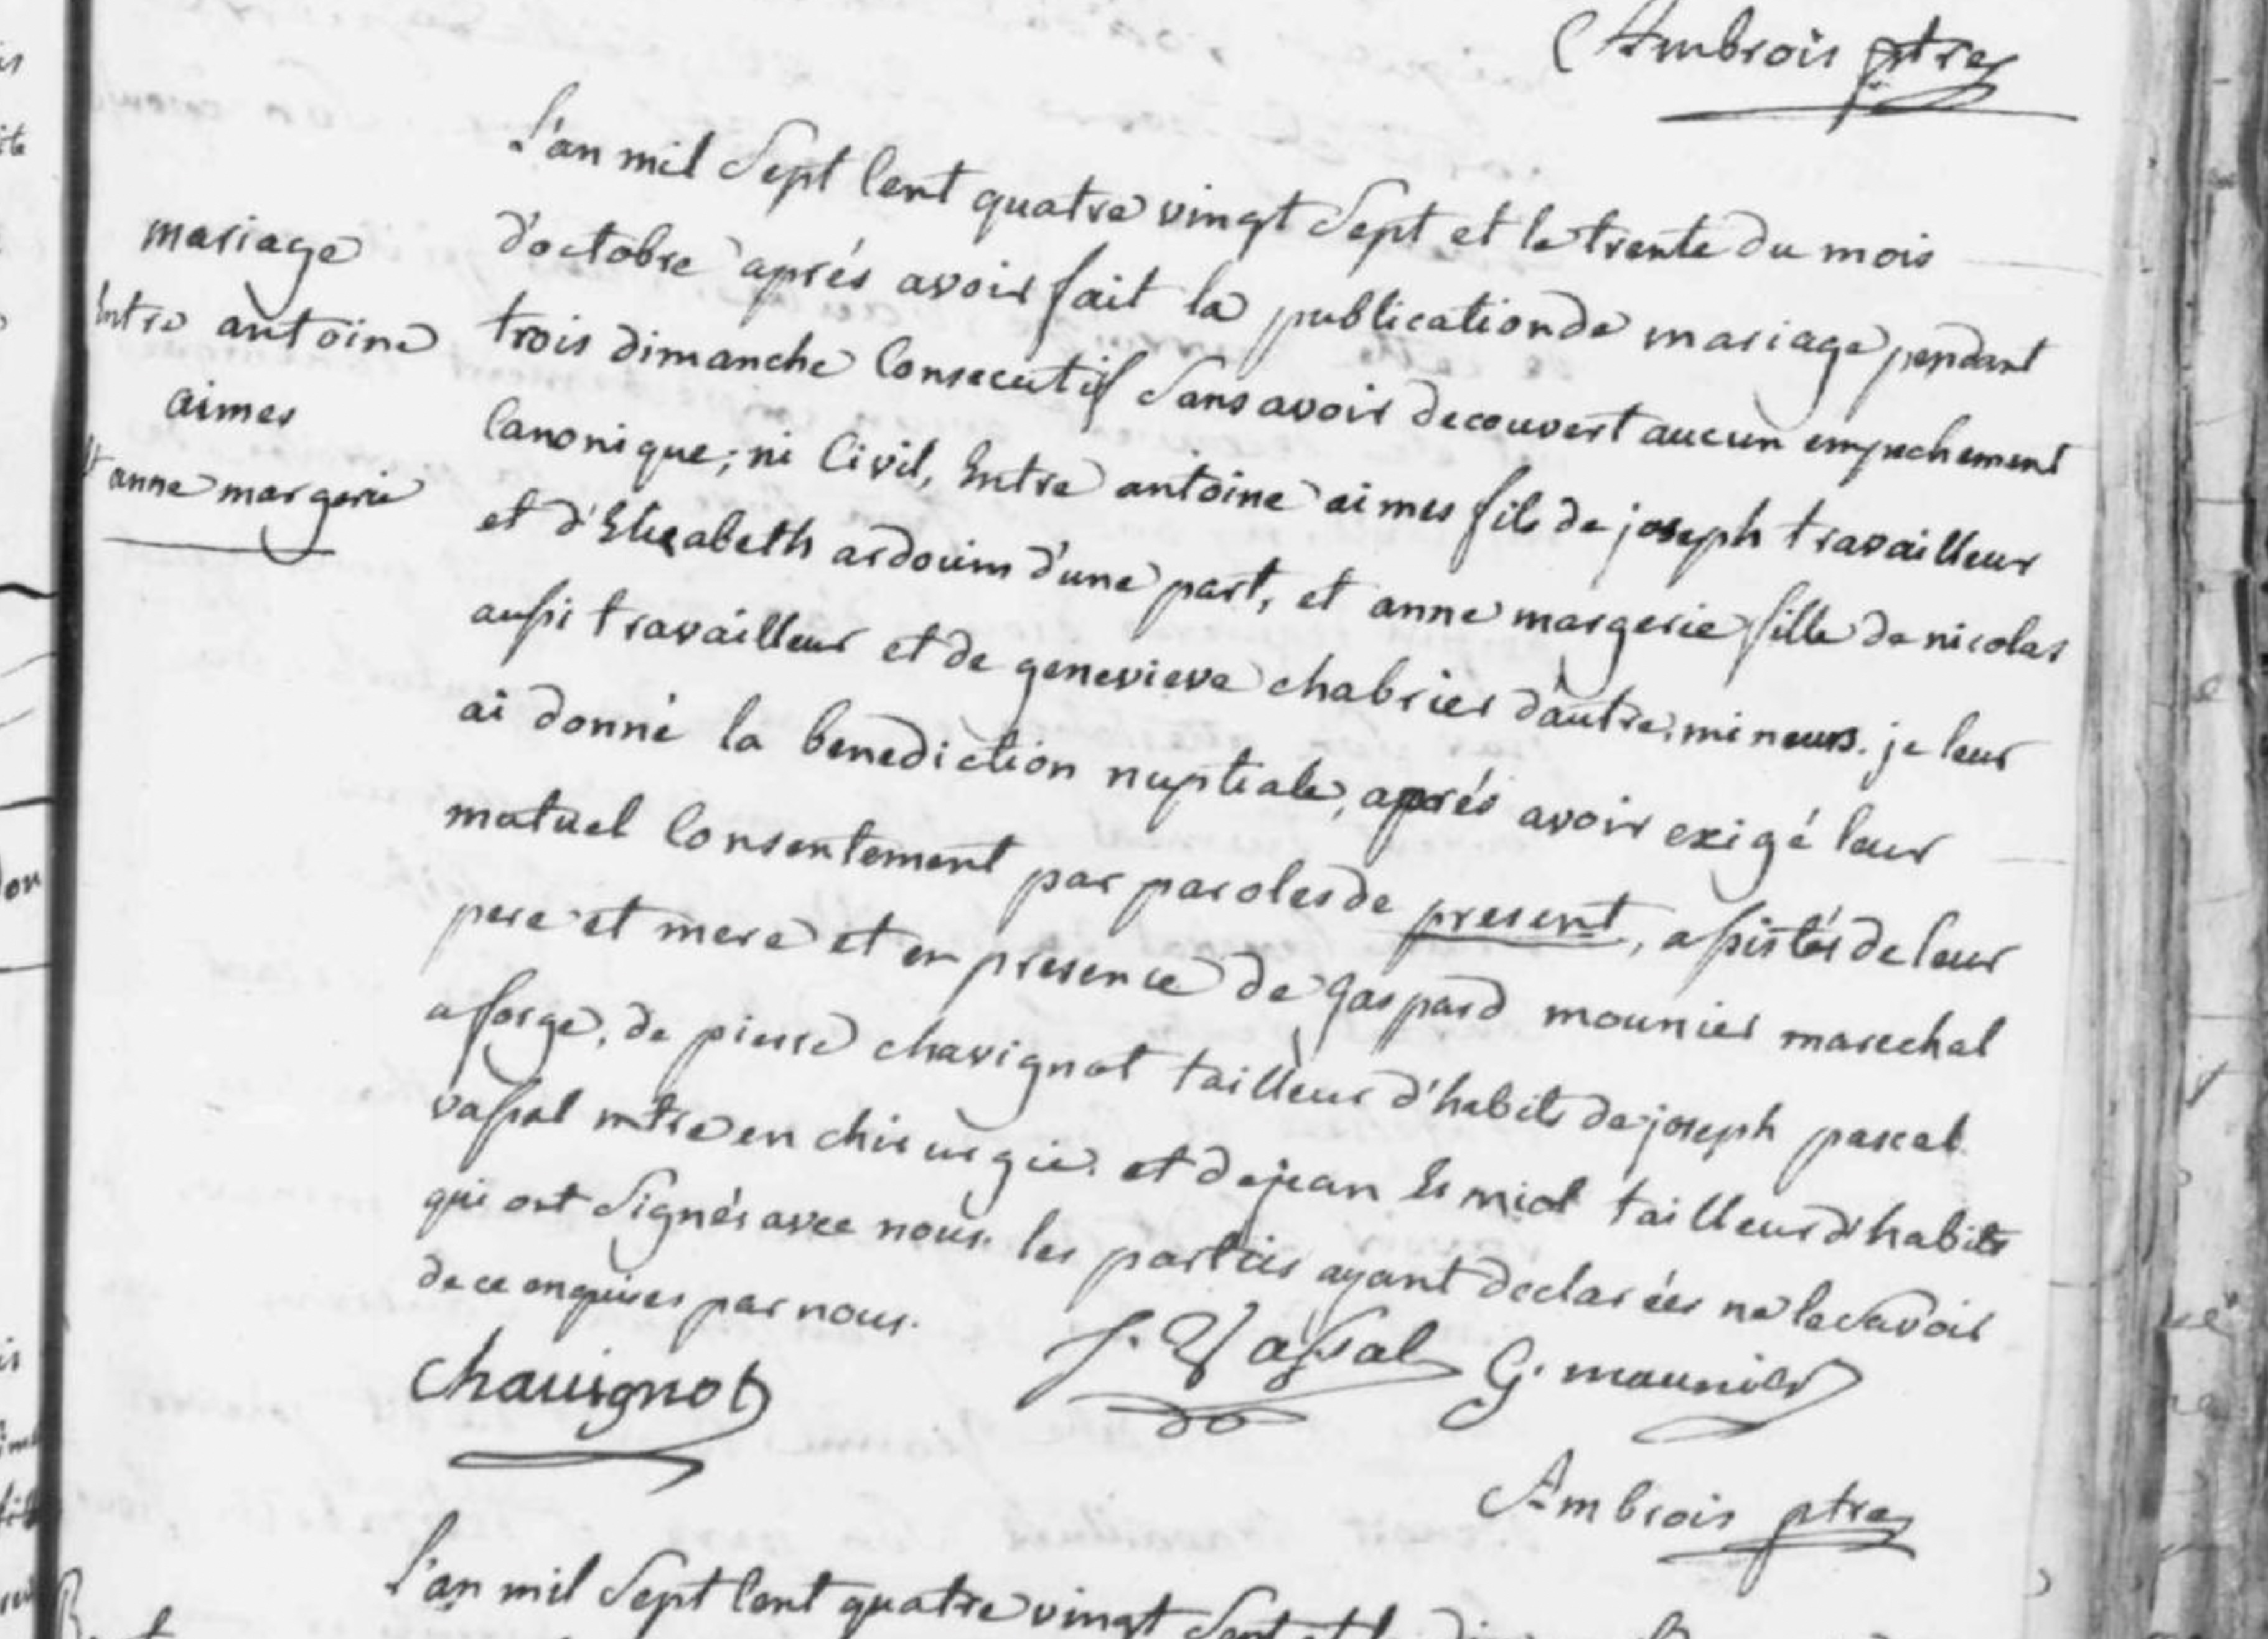 Ambrois ptre
L'an mil Sept Cent quatre vingt Sept et le trente du mois
d'octobre aprés avoir fait la publication de mariage pendant
trois dimanche Consecutif Sans avoir decouvert aucun empechement
Canonique, ni Civil, Entre antoine aimes fils de joseph travailleur
et d'Elizabeth ardouin d'une part, et anne margerie fille de nicolas
aussi travailleur et de genevieve chabrier d'autre, mineurs. je leur
ai donné la benediction nuptiale, aprés avoir exigé leur
mutuel Consentement par paroles de present, assistés de leur
pere et mere et en presence de gaspard mounier marechal
a forge, de pierre chavignot tailleur d'habits de joseph pascal
vassal mtre en chirurgie. et de jean Esmiol tailleur d'habits
qui ont Signés avec nous. les parties ayant declarées ne le Savoir
de ce enquises par nous.
mariage
Entre antoine
aimes
et anne margerie
chauignot
J. Vassal
G. mounier
Ambrois ptre
L'an mil Sept Cent quatre vingt Sept et le